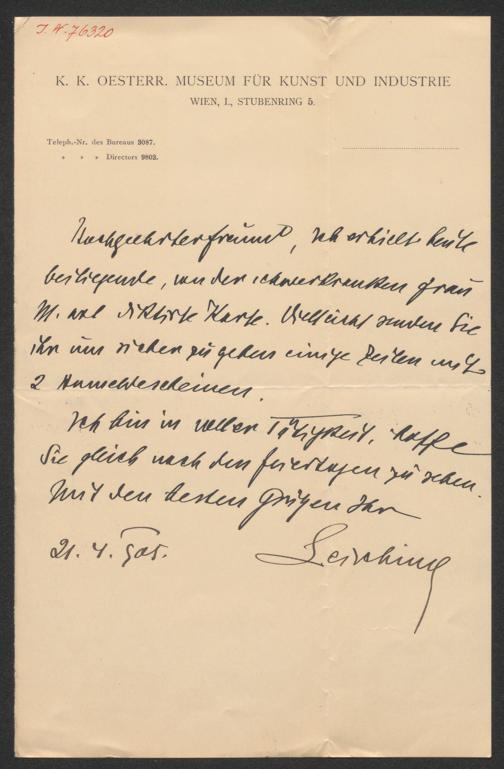 I. N. 76320
K. K. OESTERR. MUSEUM FÜR KUNST UND INDUSTRIE
WIEN, I., STUBENRING 5.
Teleph.-Nr. des Bureaus 3087.
„ „ „ Directors 9803.
Hochgeehrter Freund, ich erhielt heute
beiliegende, von der schwerkranken Frau
M. diktirte Karte. Vielleicht senden Sie
ihr um sicher zu gehen einige Zeilen mit
2 Anmeldescheinen.
Ich bin in voller Tätigkeit, hoffe
Sie gleich nach den Feiertagen zu sehen.
Mit den besten Grüßen Ihr
21. 4. 905. Leisching